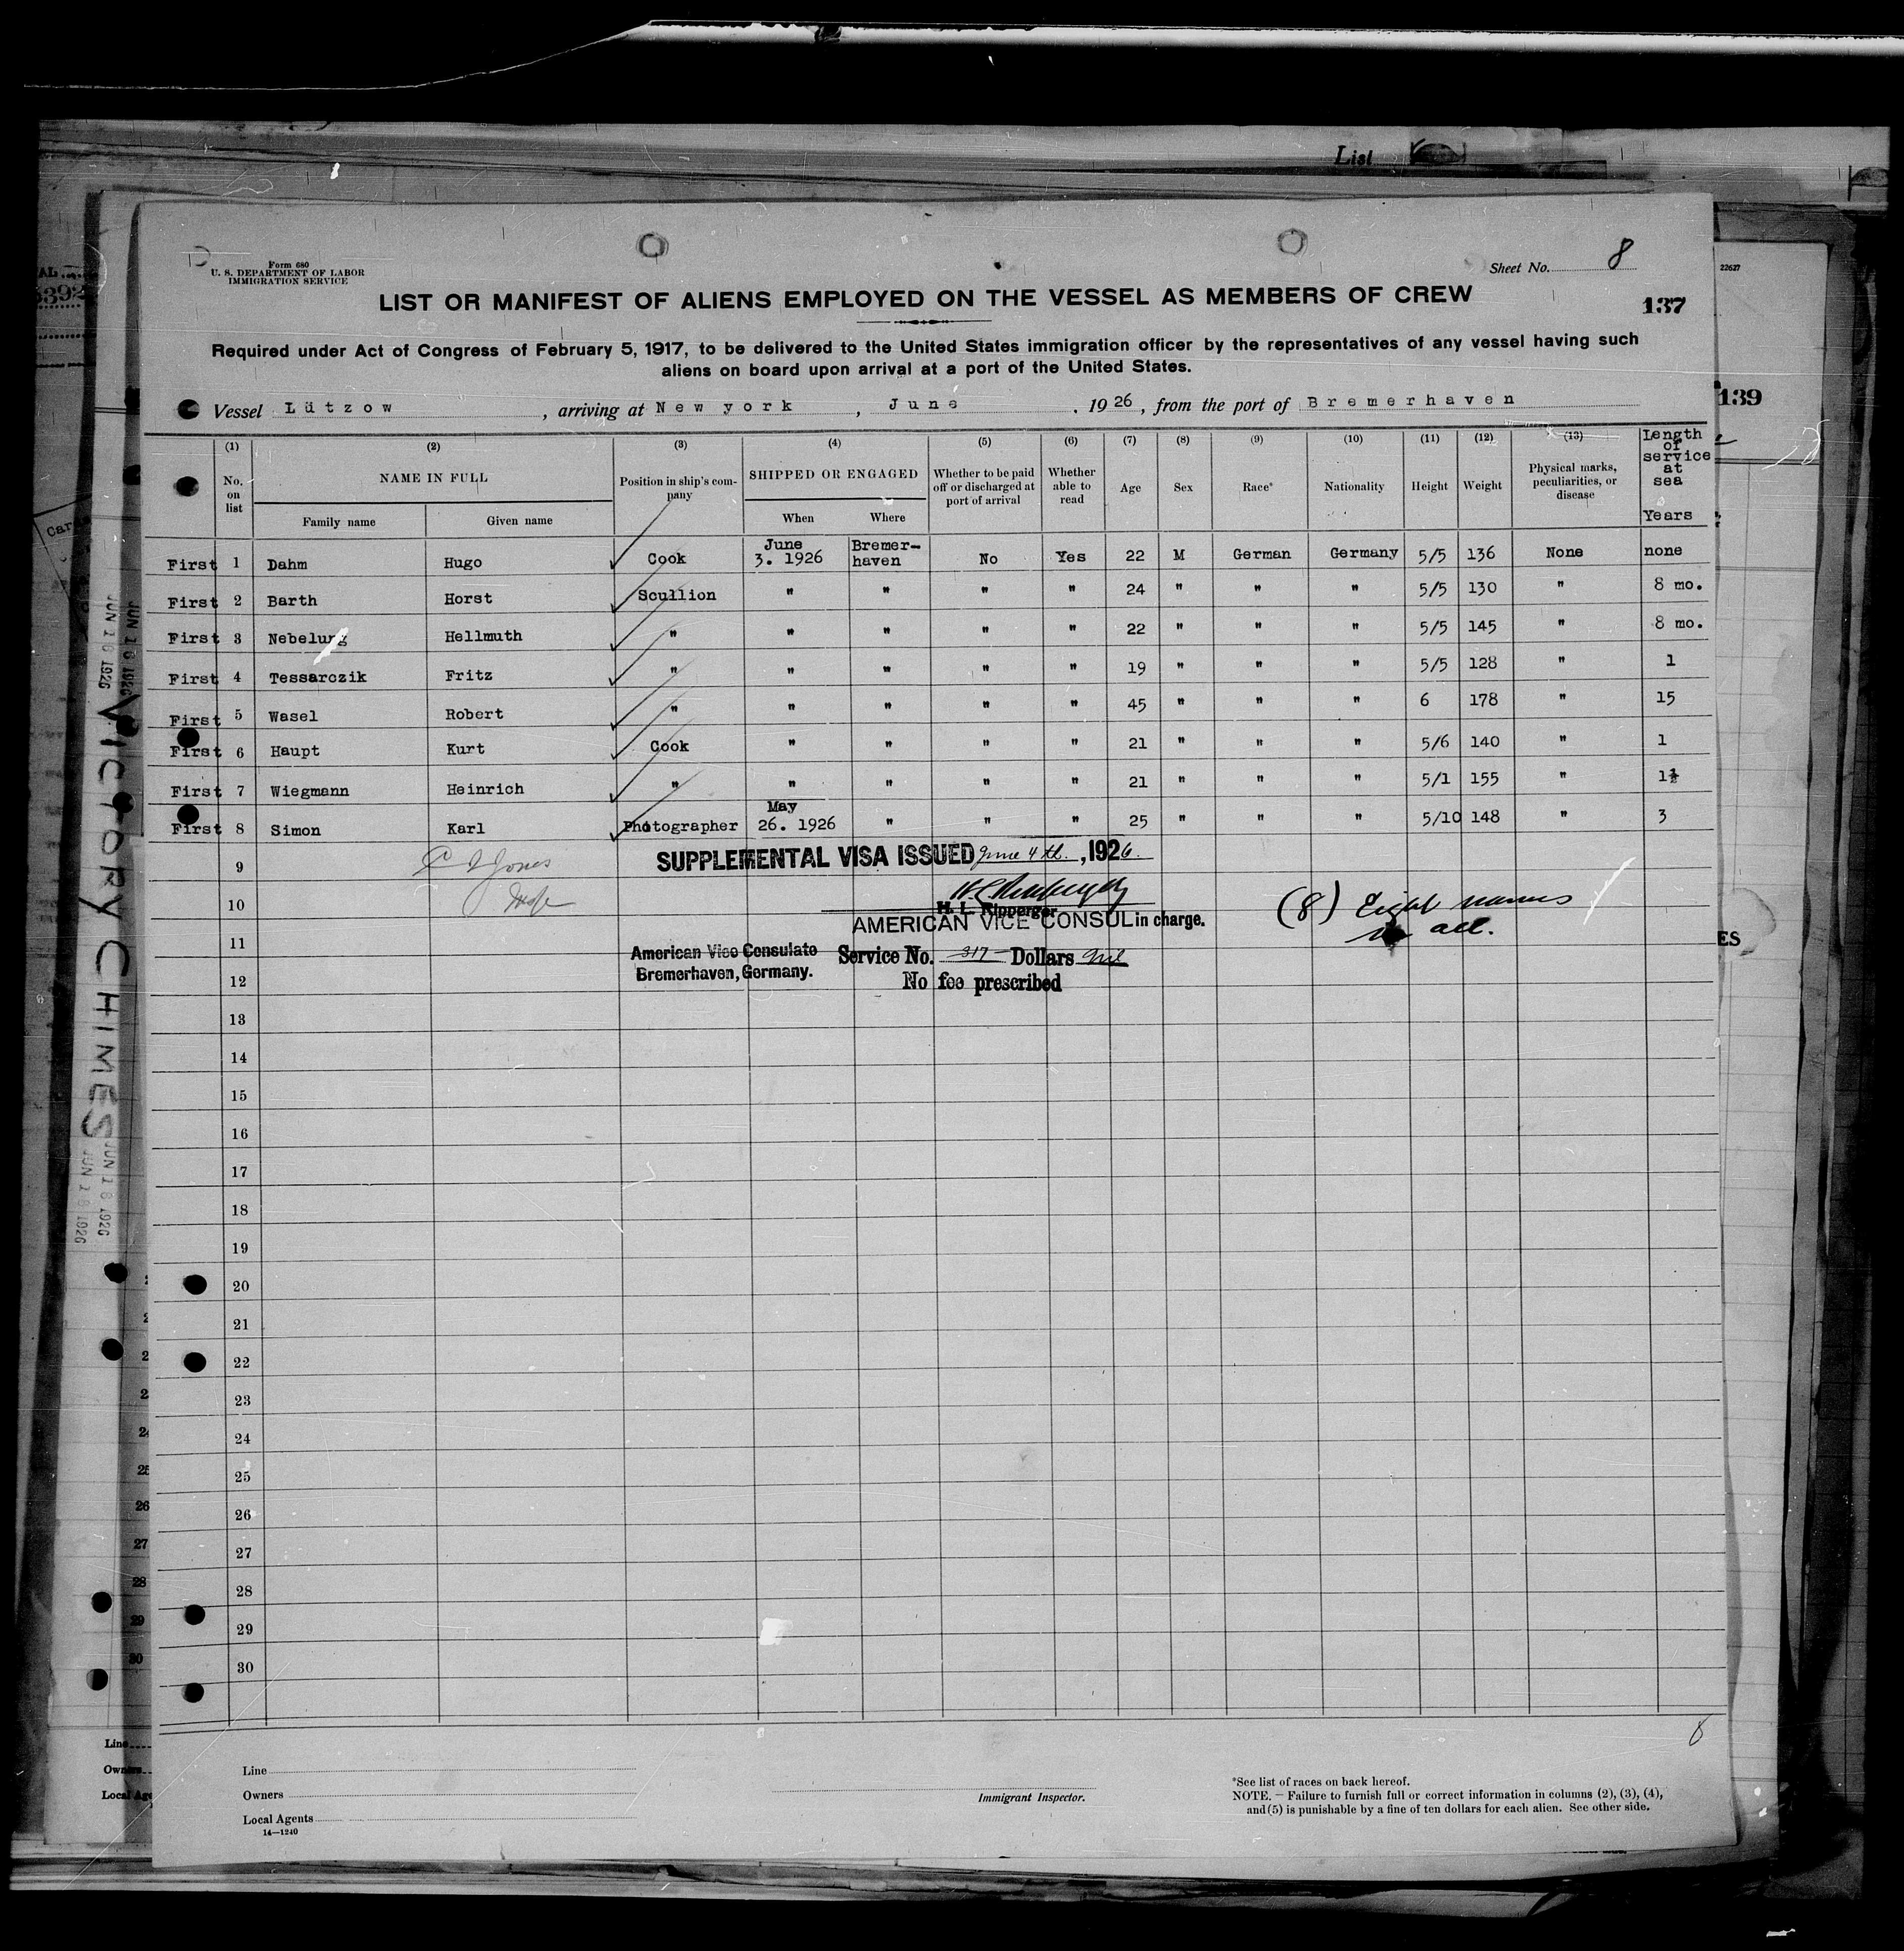 List
Form 680
U. S. DEPARTMENT OF LABOR
IMMIGRATION SERVICE
Sheet No. 8
22627
LIST OR MANIFEST OF ALIENS EMPLOYED ON THE VESSEL AS MEMBERS OF CREW
137
Required under Act of Congress of February 5, 1917, to be delivered to the United States immigration officer by the representatives of any vessel having such
aliens on board upon arrival at a port of the United States.
139
Vessel Lützow , arriving at New york , June , 19 26 , from the port of Bremerhaven
(1) (2) (3) (4) (5) (6) (7) (8) (9) (10) (11) (12) (13) Length of service at sea Years
No. on list NAME IN FULL Position in ship's company SHIPPED OR ENGAGED Whether to be paid off or discharged at port of arrival Whether able to read Age Sex Race* Nationality Height Weight Physical marks, peculiarities, or disease
Family name Given name When Where
First 1 Dahm Hugo Cook June 3. 1926 Bremer-haven No Yes 22 M German Germany 5/5 136 None none
First 2 Barth Horst Scullion " " " " 24 " " " 5/5 130 " 8 mo.
First 3 Nebelung Hellmuth " " " " " 22 " " " 5/5 145 " 8 mo.
First 4 Tessarczik Fritz " " " " " 19 " " " 5/5 128 " 1
First 5 Wasel Robert " " " " " 45 " " " 6 178 " 15
First 6 Haupt Kurt Cook " " " " 21 " " " 5/6 140 " 1
First 7 Wiegmann Heinrich " " " " " 21 " " " 5/1 155 " 1½
First 8 Simon Karl Photographer May 26. 1926 " " " 25 " " " 5/10 148 " 3
9 Jones SUPPLEMENTAL VISA ISSUED June 4th. , 1926.
10 H. L. Ripperger (8) Eight names
AMERICAN VICE CONSUL in charge. in all.
11 American Vice Consulate Service No. 317 Dollars nil
Bremerhaven, Germany.
12 No fee prescribed
13
14
15
16
17
18
19
20
21
22
23
24
25
26
27
28
29
30
8
Line
Owners
Local Agents
14—1240
Immigrant Inspector.
*See list of races on back hereof.
NOTE. — Failure to furnish full or correct information in columns (2), (3), (4),
and (5) is punishable by a fine of ten dollars for each alien. See other side.
VICTORY CHIMES
JUN 18 1926
JUN 18 1926
JUN 18 1926
JUN 18 1926
25
26
27
28
29
30
Line
Owners
Local Age
ES